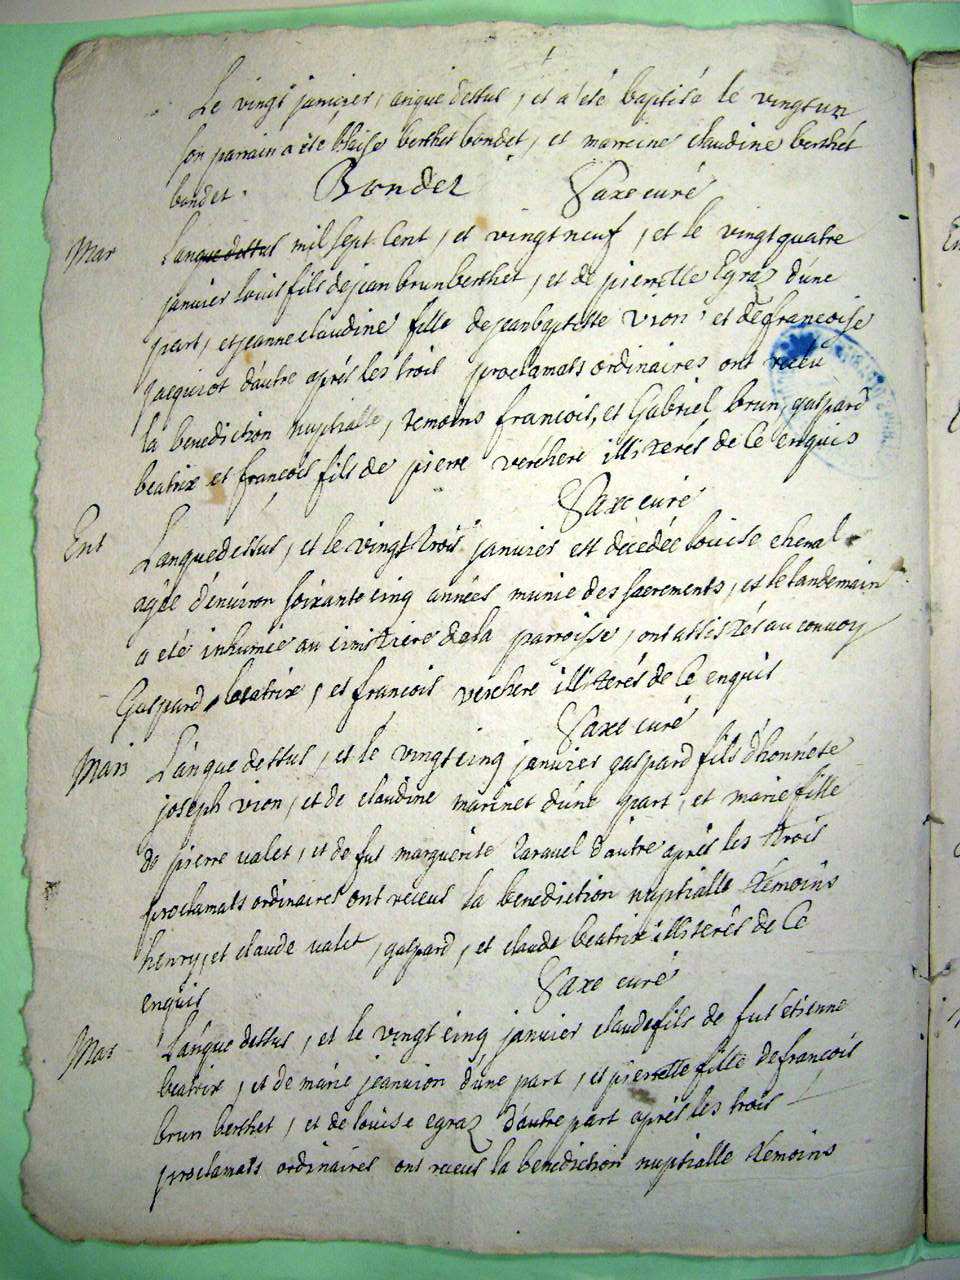 Le vingt janvier, anque dessus, et a été baptisé le vingt un
son parrain a été blaise berthet bondet, et marreine claudine berthet
bondet. Bondet Saxe curé
Mar Lanque dessus mil sept cent, et vingt neuf, et le vingt quatre
janvier louis fils de jean brun berthet, et de pierrette Egraz d'une
part, et jeanne claudine fille de jean baptiste vion, et de francoise
jacquiot d'autre aprés les trois proclamats ordinaires ont receu
la benediction nuptialle, temoins francois, et Gabriel brun, gaspard
beatrix et francois fils de pierre verchere illiterés de ce enquis
Saxe curé
Ent Lanque dessus, et le vingt trois janvier est décedée louise cheval
agée d'environ soixante cinq années munie des sacrements, et le landemain
a été inhumée au cimitiere de la parroisse, ont assistés au convoy
Gaspard beatrix, et francois verchere illiterés de ce enquis
Saxe curé
Mari Lanque dessus, et le vingt cinq janvier gaspard fils d'honnéte
joseph vion, et de claudine marinet d'une part, et marie fille
de pierre valet, et de fut marguerite taravel d'autre aprés les trois
proclamats ordinaires ont receus la benediction nuptialle témoins
henry, et claude valet, gaspard, et claude beatrix illiterés de ce
enquis Saxe curé
Mar Lanque dessus, et le vingt cinq janvier claude fils de fut etienne
beatrix, et de marie jeanvion d'une part, et pierrette fille de francois
brun berthet, et de louise egraz d'autre part aprés les trois
proclamats ordinaires ont receus la benediction nuptialle témoins